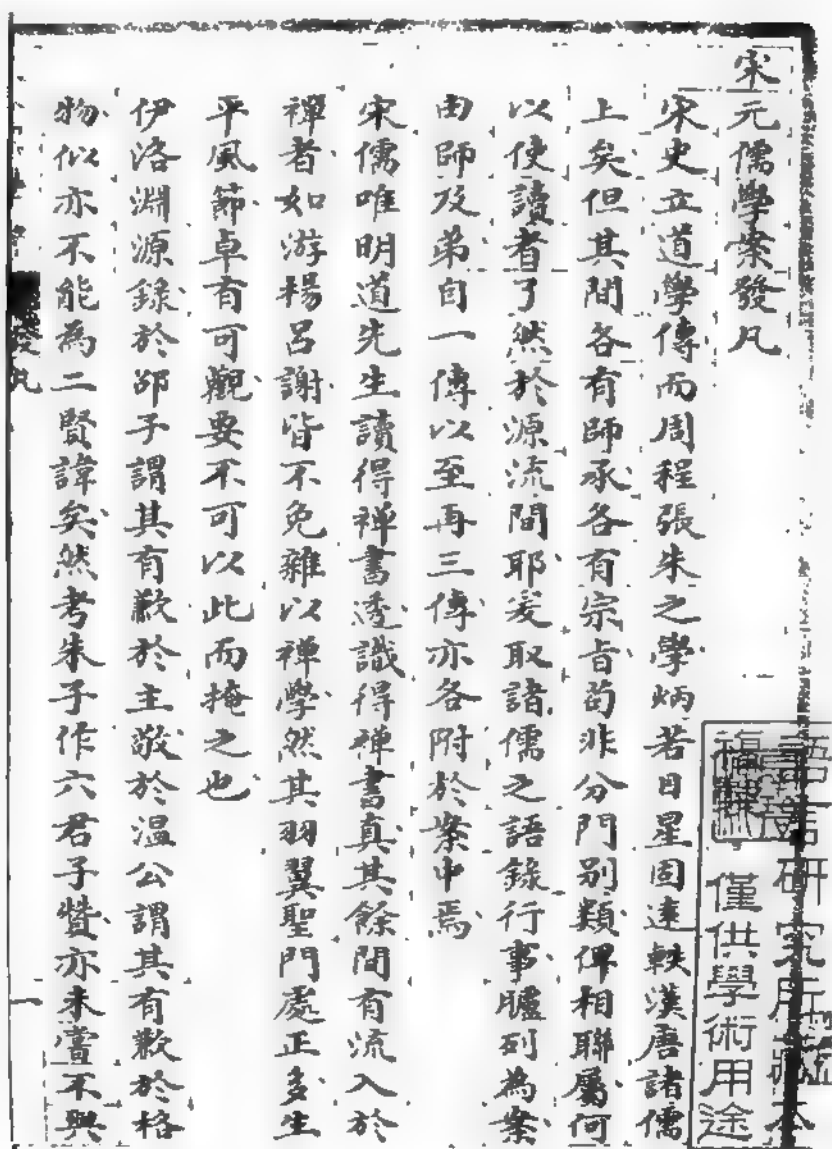 宋元儒學案發凡
宋史立道學傳而周程張朱之學炳若日星固遠軼漢唐諸儒
上矣但其間各有師承各有宗旨苟非分門别類俾相聯屬何
以使讀者了然於源流間耶爰取諸儒之語錄行事臚列為案
由師及弟自一傳以至再三傳亦各附於案中焉
宋儒唯明道先生讀得禅書透識得禅書真其餘間有流入於
禪者如游楊呂謝皆不免雜以禪學然其羽翼聖門處正多生
平風節卓有可觀要不可以此而掩之也
伊洛淵源錄於邵子謂其有歉於主敬於温公謂其有歉於格
物似亦不能為二賢諱矣然考朱子作六君子贊亦未嘗不與
發凡
一
語言研究所藏本
僅供學術用途